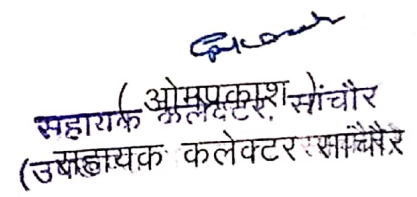 ( ओमप्रकाश )
सहायक कलेक्टर, सांचौर
सहायक कलेक्टर सांचौर